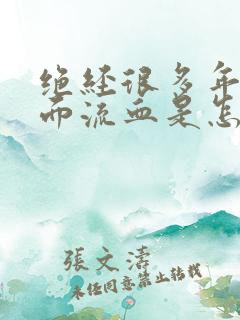 绝经很多年
而流血是怎
張文濤
未经同意禁止转载